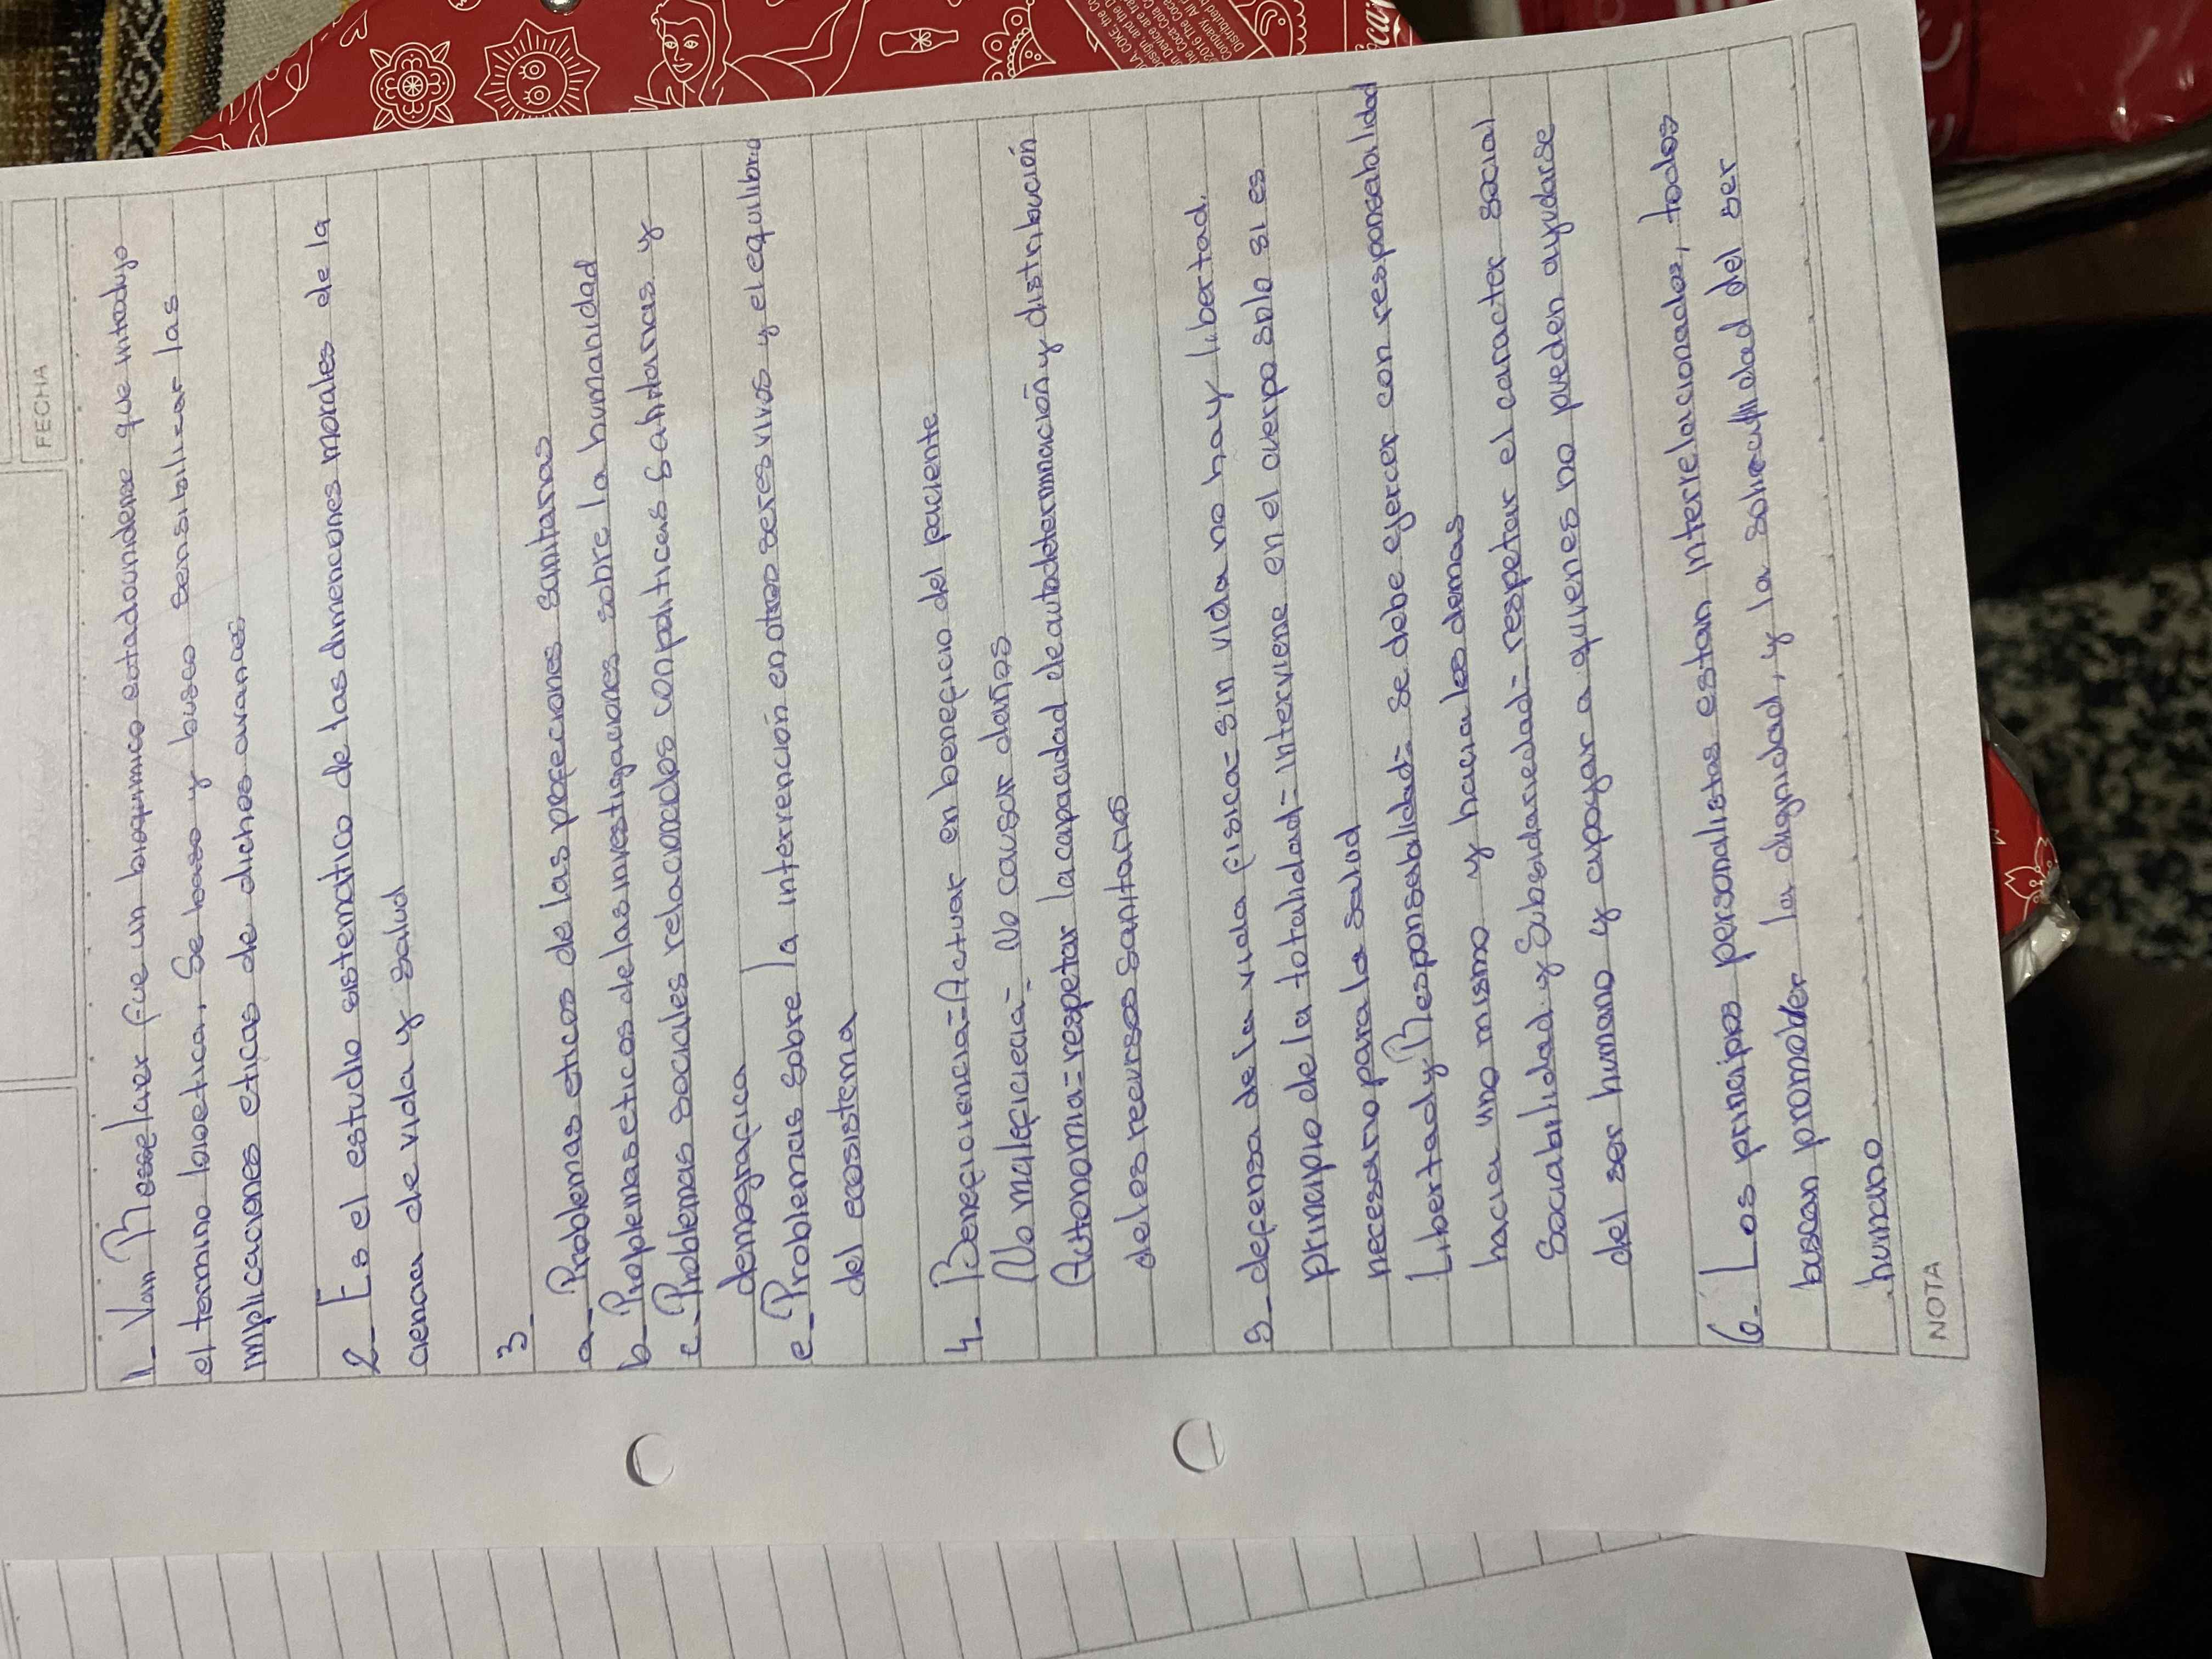 FECHA
1_ Van Rosselaer fue un bioquimico estadounidense que introdujo
el termino bioetica, Se baso y busco sensibilicar las
implicaciones eticas de dichos avances
2_ Es el estudio sistematico de las dimenciones morales de la
ciencia de vida y salud
3_
a_ Problemas eticos de las profeciones sanitarias
b_ Problemas eticos de las investigaciones sobre la humanidad
c_ Problemas sociales relacionados con politicas sanitarias y
demografica
e_ Problemas sobre la intervención en otros seres vivos y el equilibrio
del ecosistema
4_ Beneficiencia= Actuar en beneficio del paciente
No maleficiecia= No causar daños
Autonomia= respetar la capacidad de autodeterminación y distribución
de los recursos sanitarios
5_ defensa de la vida fisica= sin vida no hay libertad.
principio de la totalidad= interviene en el cuerpo solo si es
necesario para la salud
Libertad y Responsabilidad= se debe ejercer con responsabilidad
hacia uno mismo y hacia los demas
Sociabilidad y Subsidariedad= respetar el caracter social
del ser humano y apoyar a quienes no pueden ayudarse
6_ Los principios personalistas estan interrelacionados, todos
buscan promover la dignidad, y la del ser
humano
NOTA